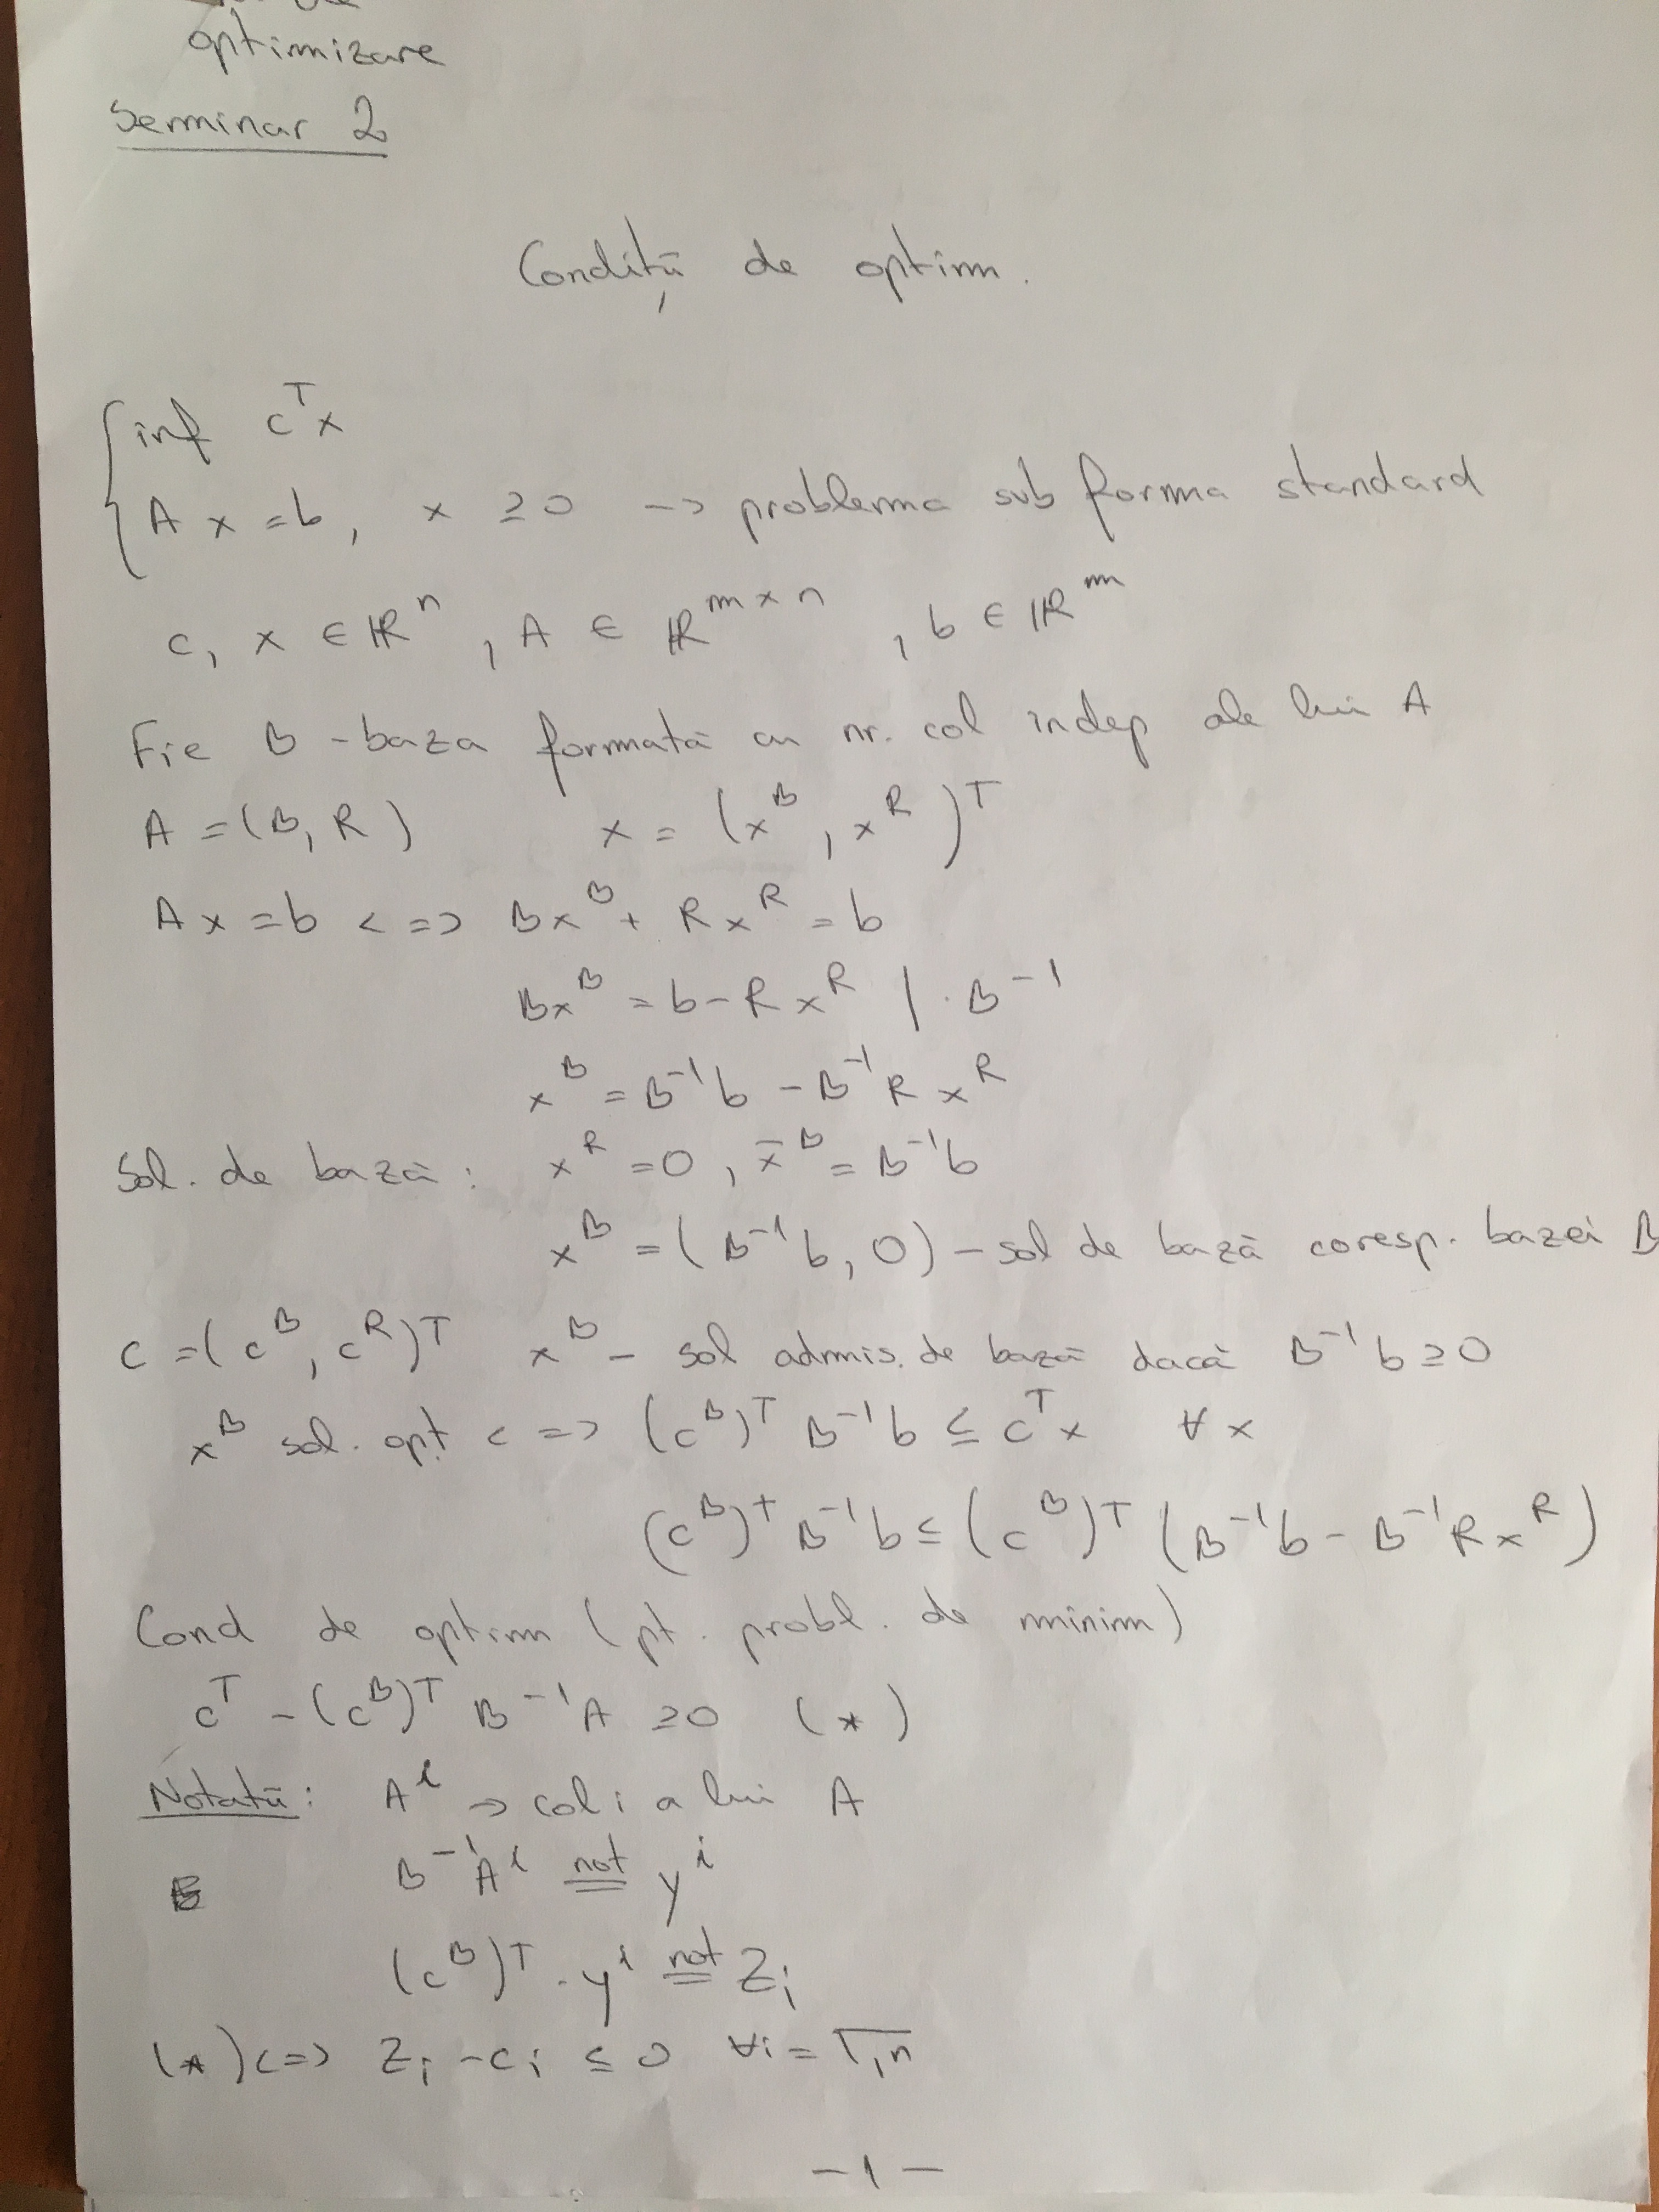 optimizare
Seminar 2
Condiții de optim.
inf c^T x
A x = b, x ≥ 0 -> problema sub forma standard
c, x ∈ ℝ^n, A ∈ ℝ^{m×n}, b ∈ ℝ^m
Fie B - baza formată cu nr. col indep ale lui A
A = (B, R) x = (x^B, x^R)^T
A x = b <=> B x^B + R x^R = b
B x^B = b - R x^R | · B^{-1}
x^B = B^{-1} b - B^{-1} R x^R
Sol. de bază: x^R = 0, x̄^B = B^{-1} b
x^B = (B^{-1} b, 0) - sol de bază coresp. bazei B
c = (c^B, c^R)^T x^B - sol admis. de bază dacă B^{-1} b ≥ 0
x^B sol. opt <=> (c^B)^T B^{-1} b ≤ c^T x ∀ x
(c^B)^T B^{-1} b ≤ (c^B)^T (B^{-1} b - B^{-1} R x^R)
Cond de optim (pt. probl. de minim)
c^T - (c^B)^T B^{-1} A ≥ 0 (*)
Notații: A^i -> col i a lui A
B^{-1} A^i not== y^i
(c^B)^T · y^i not== z_i
(*) <=> z_i - c_i ≤ 0 ∀ i = \overline{1,n}
- 1 -